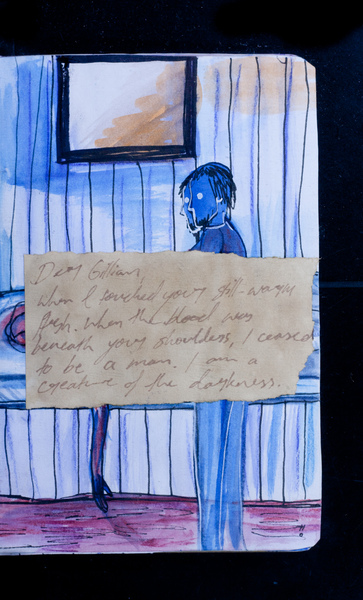 Dear Gillian,
When I touched your still-warm
flesh. When the blood was
beneath your shoulders, I ceased
to be a man. I am a
creature of the darkness.